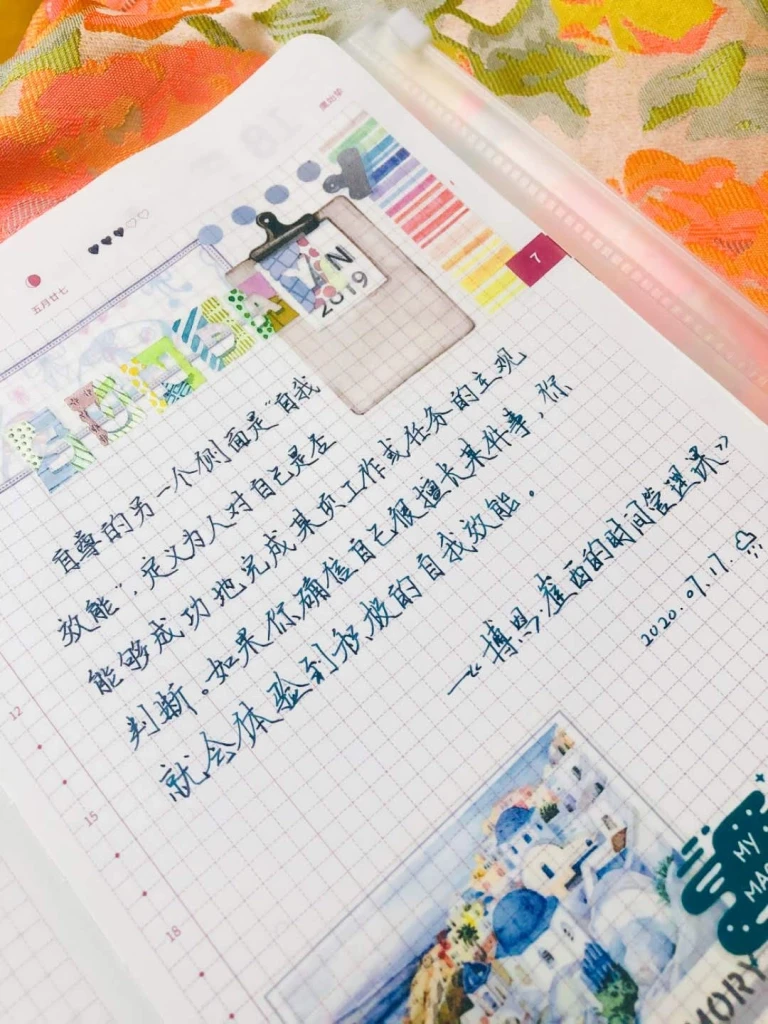 7
五月廿七
2019
自尊的另一个侧面是“自我
效能”，定义为人对自己是否
能够成功地完成某项工作或任务的主观
判断。如果你确信自己很擅长某件事，你
就会体验到积极的自我效能。
—《博恩·崔西的时间管理课》
2020.07.17.
12
15
18
MY